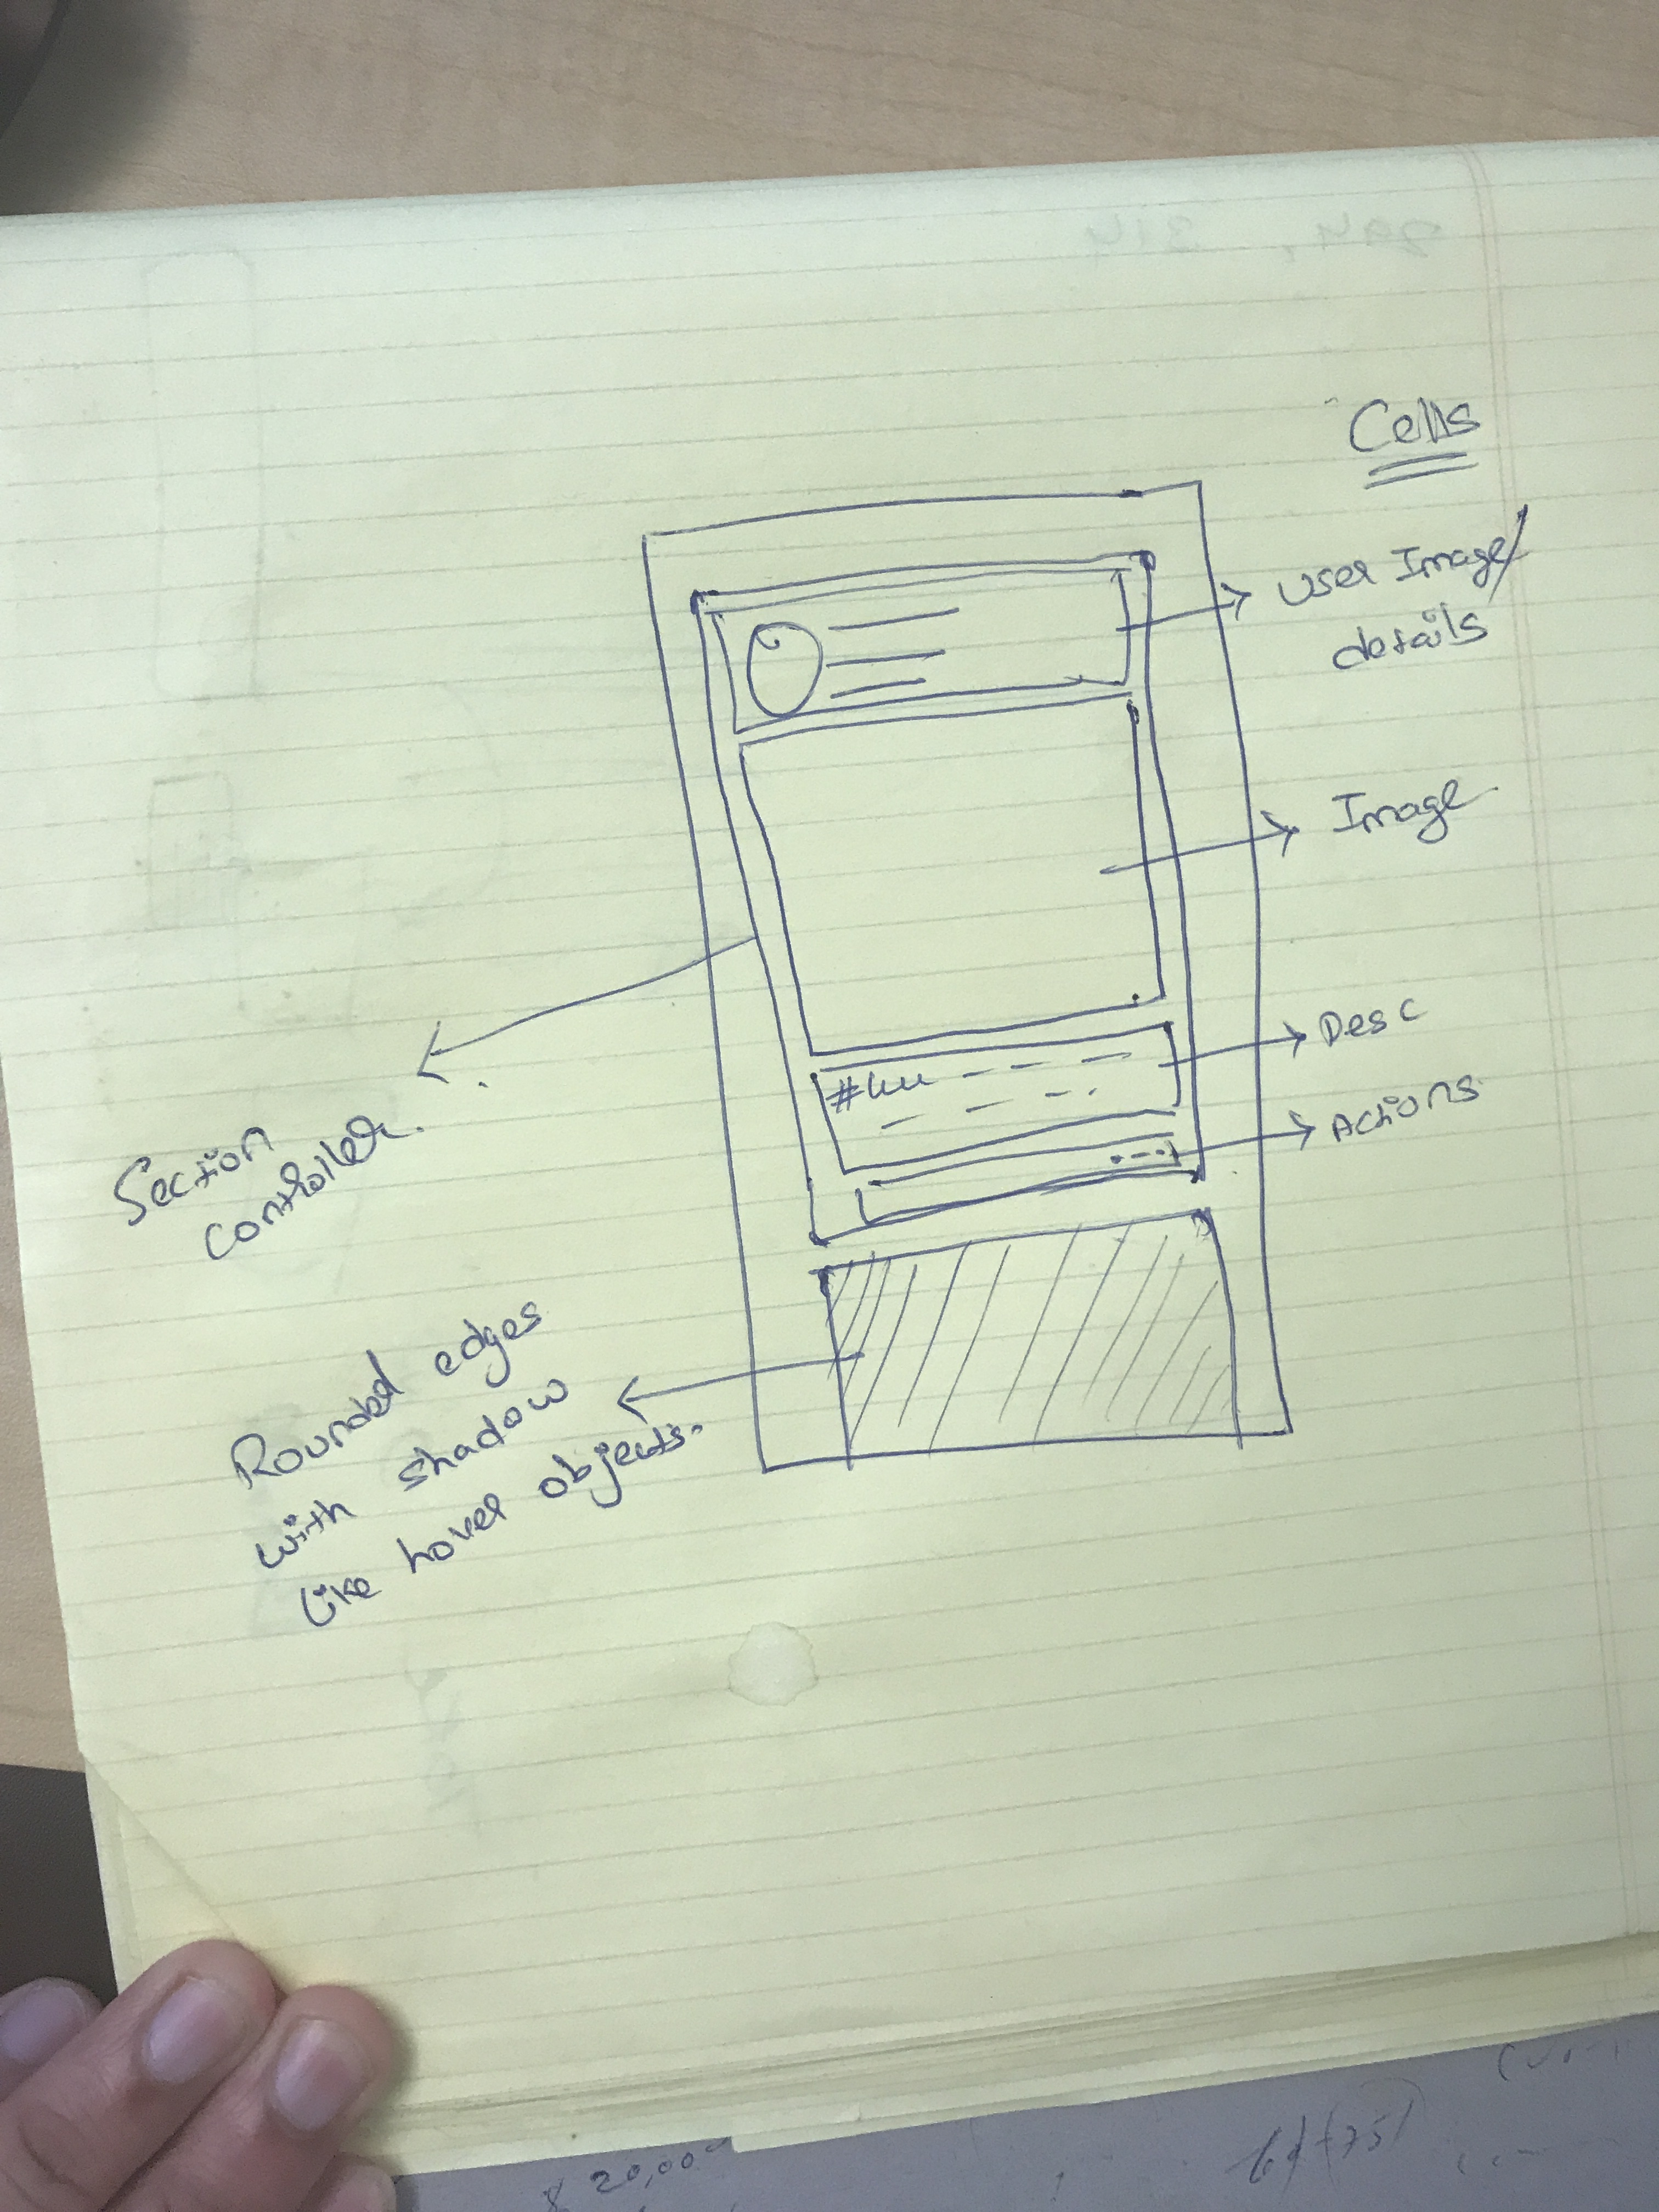 Cells
User Image/
details
Image
#
Desc
Actions
Section
controller.
Rounded edges
with shadow
like hover objects.
$ 20,000